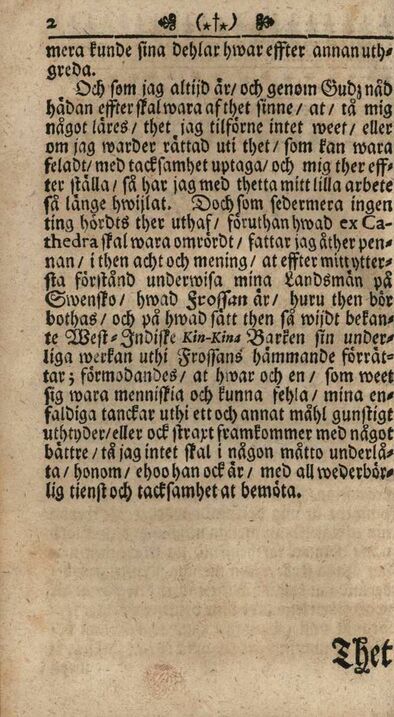 2 (⋆†⋆)
mera kunde sina dehlar hwar effter annan uth-
greda.
Och som jag altijd är/ och genom Gudz nåd
hädan effter skal wara af thet sinne/ at/ tå mig
något läres/ thet jag tilförne intet weet/ eller
om jag warder rättad uti thet/ som kan wara
feladt/ med tacksamhet uptaga/ och mig ther eff-
ter ställa/ så har jag med thetta mitt lilla arbete
så länge hwijlat. Doch som sedermera ingen
ting hördts ther uthaf/ föruthan hwad ex Ca-
thedra skal wara omrördt/ fattar jag åther pen-
nan/ i then acht och mening/ at effter mitt ytter-
sta förstånd underwisa mina Landsmän på
Swensko/ hwad Frossan är/ huru then bör
bothas/ och på hwad sätt then så wijdt bekan-
te West-Indiske Kin-Kina Barken sin under-
liga werkan uthi Frossans hämmande förrät-
tar; förmodandes/ at hwar och en/ som weet
sig wara menniskia och kunna fehla/ mina en-
faldiga tanckar uthi ett och annat mähl gunstigt
uthtyder/ eller ock straxt framkommer med något
bättre/ tå jag intet skal i någon måtto underlå-
ta/ honom/ ehoo han ock är/ med all wederbör-
lig tienst och tacksamhet at bemöta.
Thet